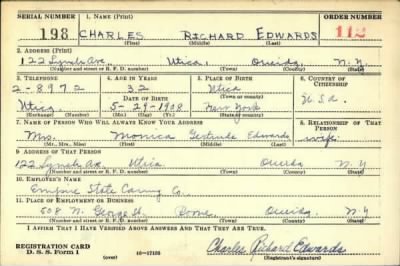 SERIAL NUMBER 1. NAME (Print) ORDER NUMBER
198 CHARLES RICHARD EDWARDS 112
(First) (Middle) (Last)
2. ADDRESS (Print)
122 Lynch Ave. Utica, Oneida, N.Y.
(Number and street or R. F. D. number) (Town) (County) (State)
3. TELEPHONE 4. AGE IN YEARS 5. PLACE OF BIRTH 6. COUNTRY OF CITIZENSHIP
2-8972 32 Utica
DATE OF BIRTH (Town or county) U.S.A.
Utica 5-29-1908 New York
(Exchange) (Number) (Mo.) (Day) (Yr.) (State or country)
7. NAME OF PERSON WHO WILL ALWAYS KNOW YOUR ADDRESS 8. RELATIONSHIP OF THAT PERSON
Mrs. Monica Gertrude Edwards wife
(Mr., Mrs., Miss) (First) (Middle) (Last)
9. ADDRESS OF THAT PERSON
122 Lynch Ave. Utica Oneida N.Y
(Number and street or R. F. D. number) (Town) (County) (State)
10. EMPLOYER'S NAME
Empire State Co.
11. PLACE OF EMPLOYMENT OR BUSINESS
608 N. George St. Rome Oneida N.Y
(Number and street or R. F. D. number) (Town) (County) (State)
I AFFIRM THAT I HAVE VERIFIED ABOVE ANSWERS AND THAT THEY ARE TRUE.
REGISTRATION CARD
D. S. S. Form 1 16-17105 Charles Richard Edwards
(over) (Registrant's signature)